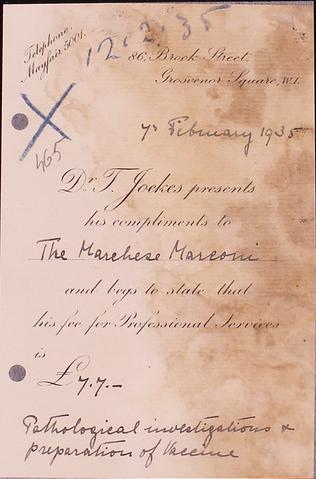 Telephone,
Mayfair 5001.
12.2.35
86, Brook Street,
Grosvenor Square, W.1.
465
7th February 1935
Dr. T. Joekes presents
his compliments to
The Marchese Marconi
and begs to state that
his fee for Professional Services
is
£7.7.-
Pathological investigations &
preparation of Vaccine